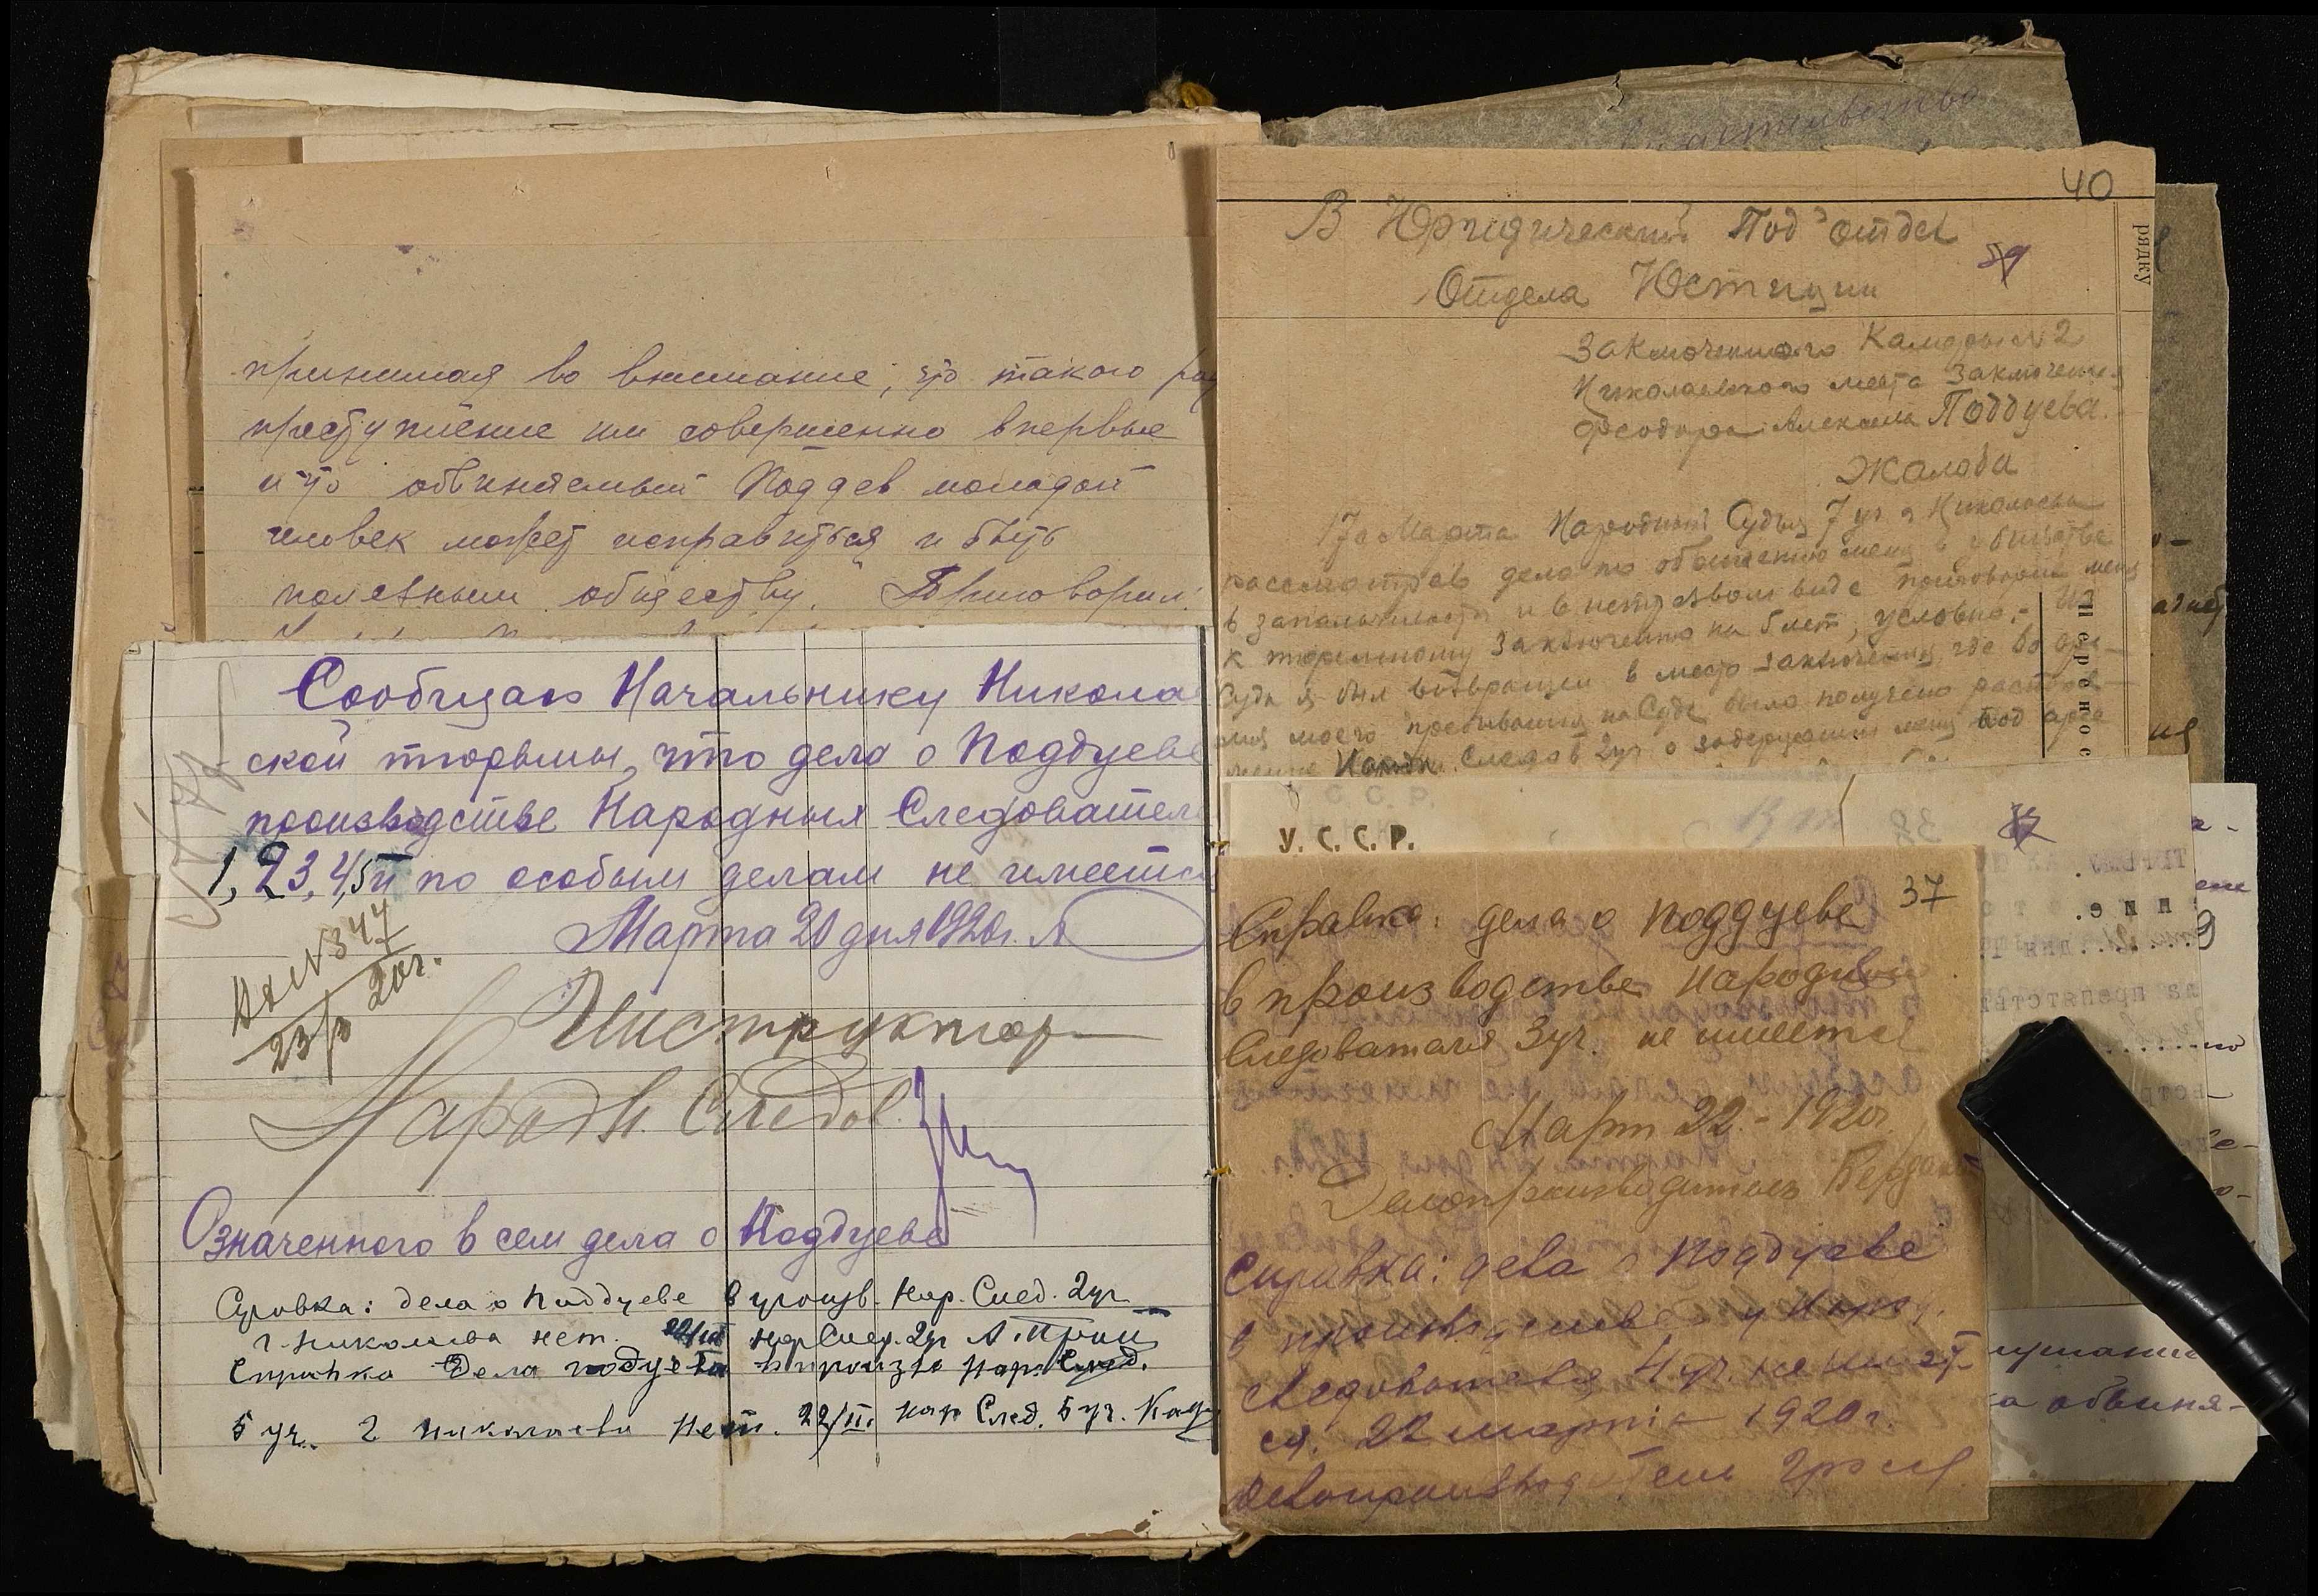 принимая во внимание, что такого
преступление им совершенно впервые
и что обвиняемый Поддев молодой
человек может исправиться и быть
полезным обществу. Приговорил:
Сообщаю Начальнику Никола
ской тюрьмы, что дела о Поддуеве
производстве Народных Следовател
1, 2, 3, 4, 5 и по особым делам не имеется
Марта 20 дня 1920 г.
Вх № 347
23/3 20 г.
Инструктор
Народн. Следов.
Означенного в сем дела о Поддуеве
Справка: дела о Поддуеве в произв. Нар. След. 2 уч.
г. Николаева нет. 22/III Нар След. 2 уч
Справка Дела Подуева в произв Нар. След.
5 уч. г Николаева Нет. 22/III. Нар След. 5 уч.
40
В Юридический Под'отдел
39
Отдела Юстиции
рядку
Заключенного Камеры № 2
Николаевского места заключения
Феодора Поддуева.
Жалоба
17го Марта Народный Судья 7 уч. г Николаева
рассмотрев дело по обвинению меня в убийстве
в запальчивости и в нетрезвом виде приговорил меня
к тюремному заключению на 5 лет, условно.- Из
Суда я был возвращен в место заключения, где во вре-
мя моего пребывания на Суде было получено распоря-
жение Народн. Следов 2 уч. о задержании меня под
Перенос
У. С. С. Р.
37
Справка: дела о Поддуеве
в производстве Народный
Следователя 3 уч. не имеется
Март 22.- 1920 г.
Делопроизводитель
Справка: дела о Поддуеве
в производстве у Народ.
Следователя 4 уч. не имеет-
ся. 22 марта 1920 г.
Делопроизводитель
ка обвиня-